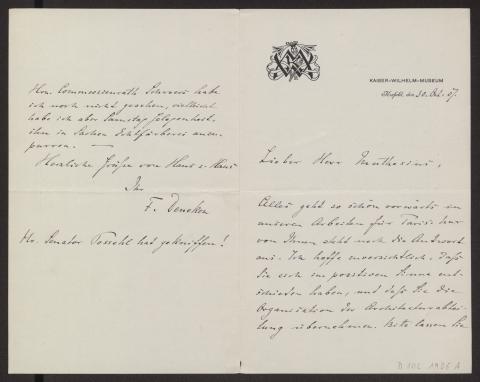 KAISER-WILHELM-MUSEUM
Krefeld, den 30. Okt. 07.
Lieber Herr Muthesius,
Alles geht so schön vorwärts in
unseren Arbeiten für Paris: nur
von Ihnen steht noch die Antwort
aus. Ich hoffe zuversichtlich, daß
Sie sich im positiven Sinne ent-
schieden haben, und daß Sie die
Organisation der Architekturabtei-
lung übernehmen. Bitte lassen Sie
Hrn. Commerzienrath habe
ich noch nicht gesehen, vielleicht
habe ich aber Samstag Gelegenheit
ihn in Sachen
Herzliche Grüße von Haus z. Haus
Ihr
F. Deneken
Hr. Senator Possehl hat gekniffen!
D 102-1986 A